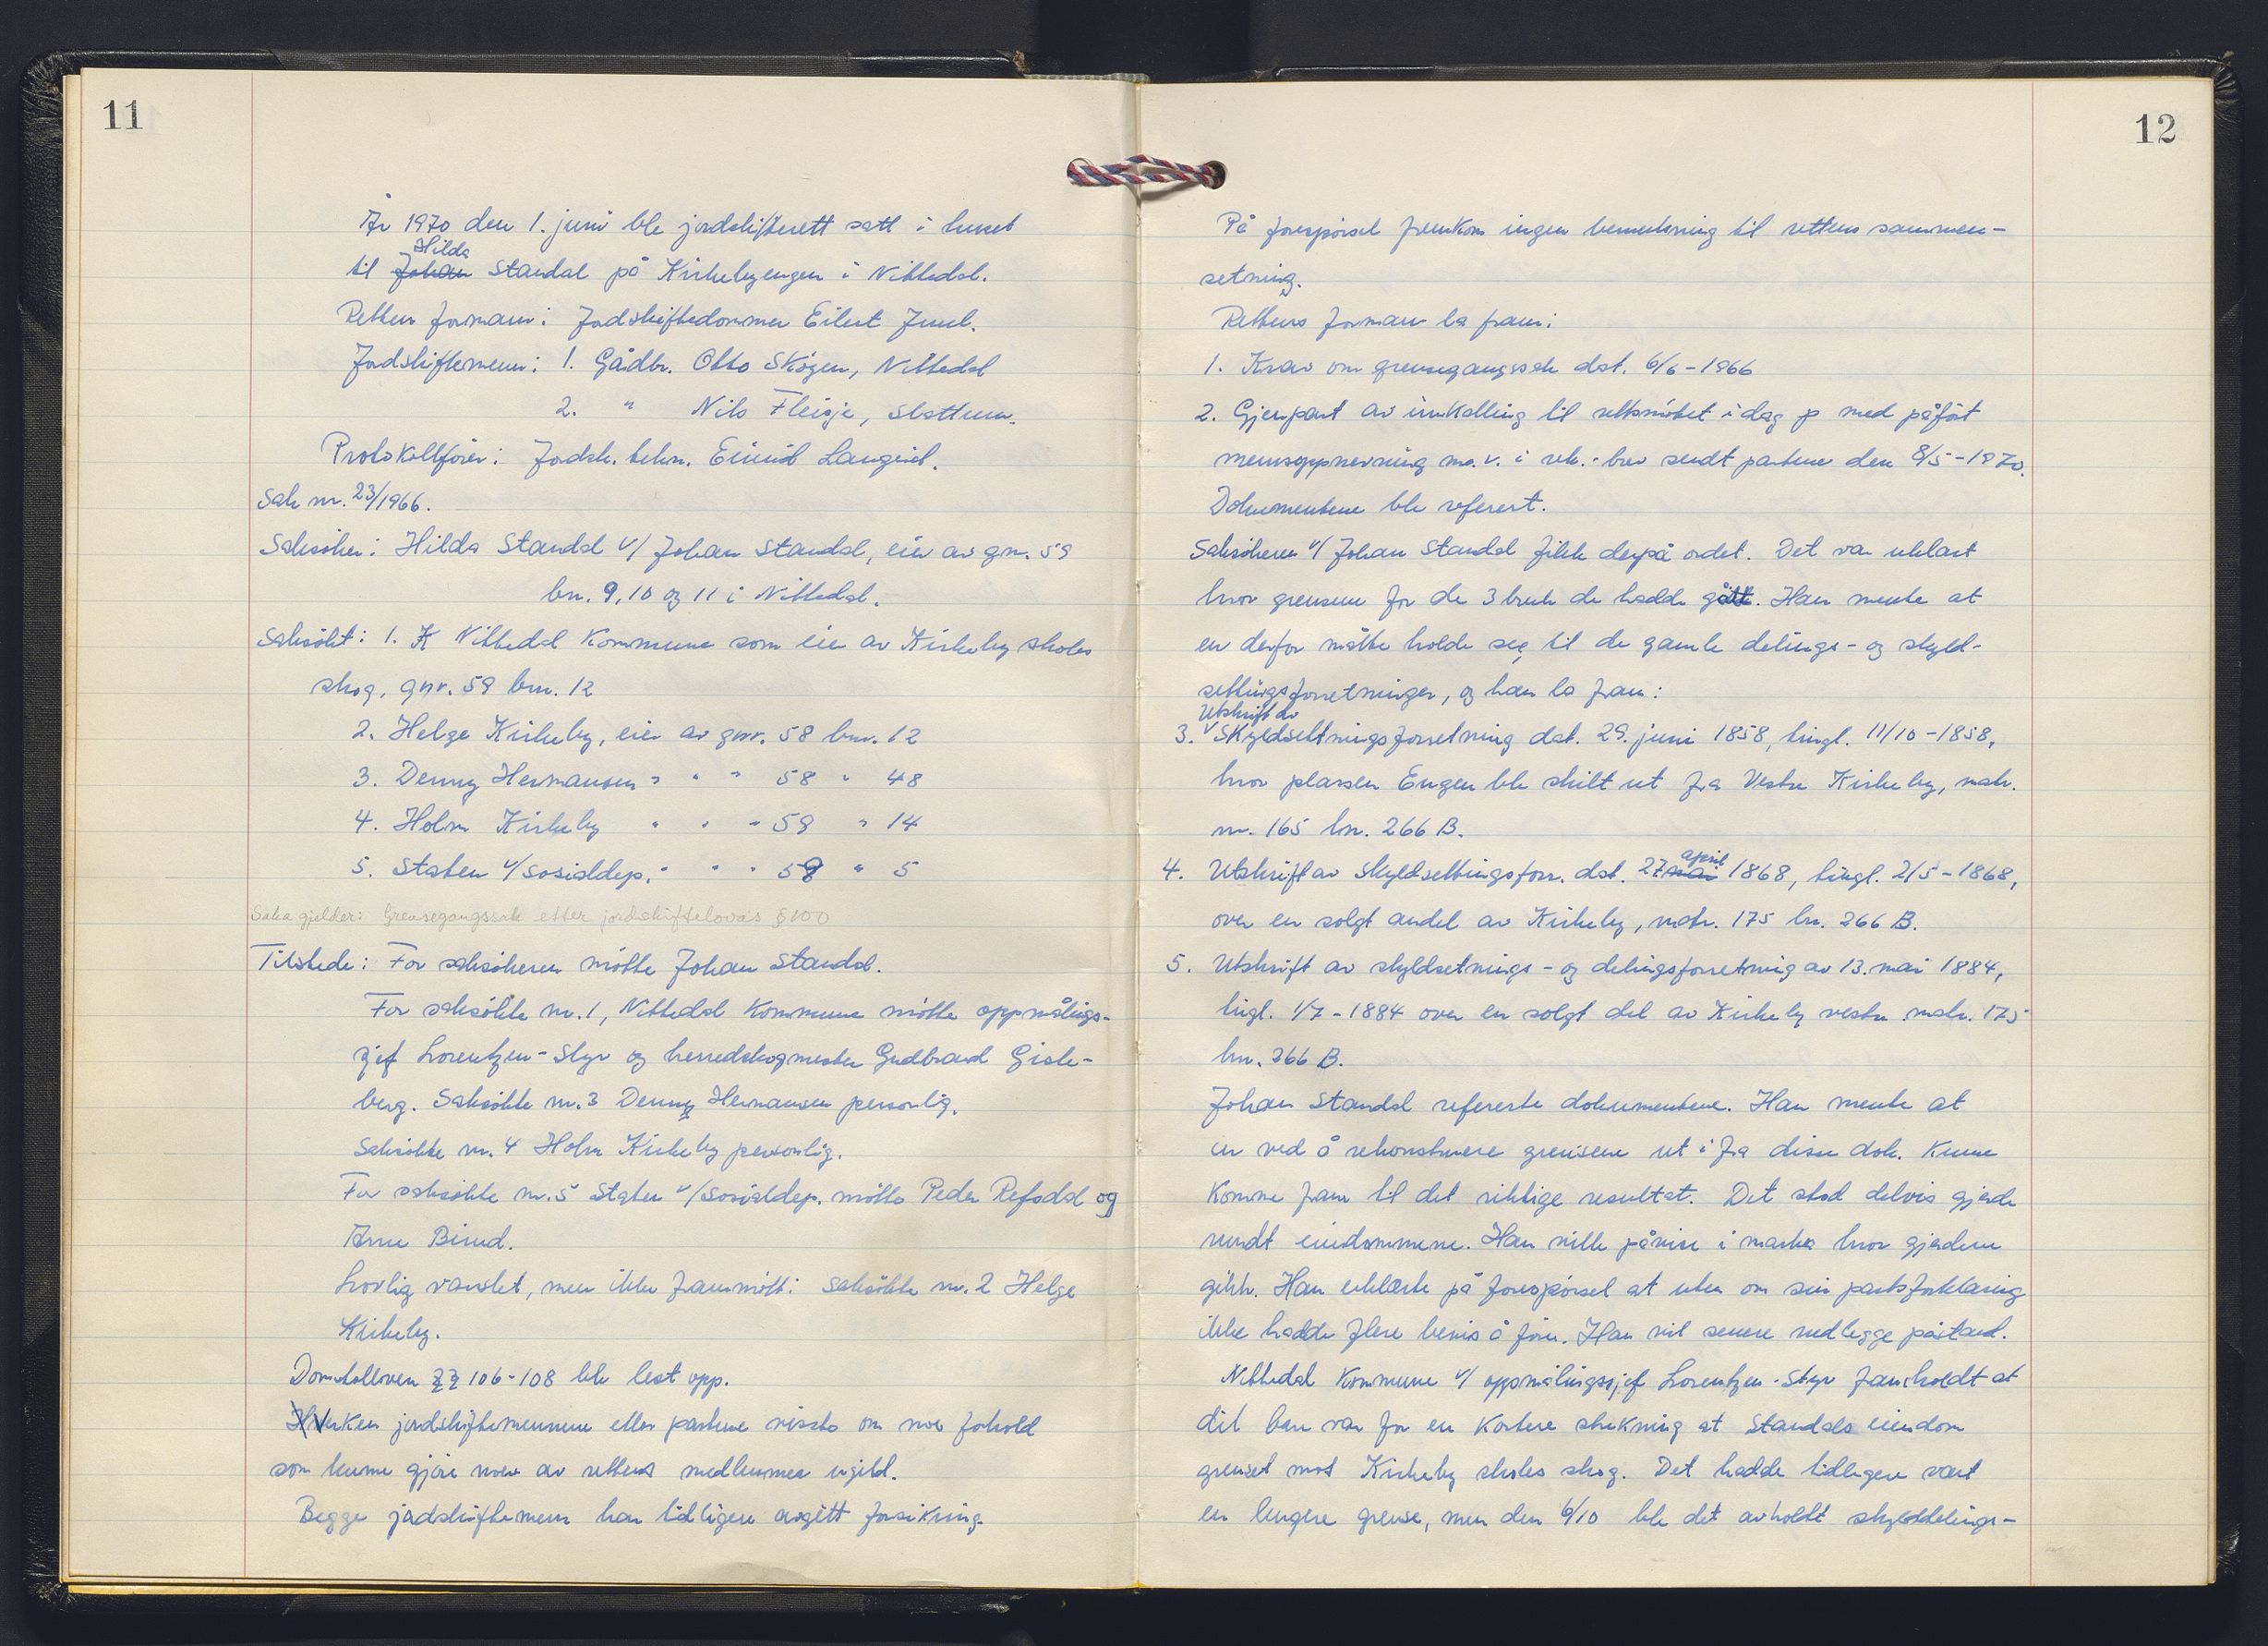 11
År 1970 den 1. juni ble jordskifterett satt i huset
Hilda
til Johan Standal på Kirkebyengen i Nittedal.
Rettens formann: Jordskiftedommer Eilert Juul.
Jordskiftemenn: 1. Gårdbr. Otto Skøgen, Nittedal
2. " Nils Fleisje, Slattum.
Protokollfører: Jordsk. tekn. Eivind Langeid.
Sak nr. 23/1966.
Saksøker: Hilda Standal v/ Johan Standal, eier av gnr. 59
bn. 9, 10 og 11 i Nittedal.
Saksøkt: 1. K Nittedal Kommune som eier av Kirkeby skoles
skog, gnr. 59 bnr. 12
2. Helge Kirkeby, eier av gnr. 58 bnr. 12
3. Denny Hermansen " " " 58 " 48
4. Holm Kirkeby " " " 59 " 14
5. Staten v/ Sosialdep. " " " 58 " 5
Saka gjelder: Grensegangssak etter jordskiftelovas § 100
Tilstede: For saksøkeren møtte Johan Standal.
For saksøkte nr. 1, Nittedal Kommune møtte oppmålings-
sjef Lorentzen-Styr og herredskogmester Gudbrand Gisle-
berg. Saksøkte nr. 3 Denny Hermansen personlig.
Saksøkte nr. 4 Holm Kirkeby personlig.
For saksøkte nr. 5 Staten v/ Sosialdep. møtte Peder Refsdal og
Arne Birud.
Lovlig varslet, men ikke frammøtt: saksøkte nr. 2 Helge
Kirkeby.
Domstolloven §§ 106-108 ble lest opp.
H Verken jordskiftemennene eller partene visste om noe forhold
som kunne gjøre noen av rettens medlemmer ugild.
Begge jordskiftemenn har tidligere avgitt forsikring.
12
På forespørsel fremkom ingen bemerkning til rettens sammen-
setning.
Rettens formann la fram:
1. Krav om grensegangssak dat. 6/6-1966
2. Gjenpart av innkalling til rettsmøtet i dag p med påført
mennsoppnevning m.v. i rek.-brev sendt partene den 8/5-1970.
Dokumentene ble referert.
Saksøkeren v/ Johan Standal fikk derpå ordet. Det var uklart
hvor grensene for de 3 bruk de hadde gått. Han mente at
en derfor måtte holde seg til de gamle delings- og skyld-
settingsforretninger, og han la fram:
Utskrift av
3. V Skyldsettningsforretning dat. 29. juni 1858, tingl. 11/10-1858,
hvor plassen Engen ble skilt ut fra Vestre Kirkeby, matr.
nr. 165 lnr. 266 B.
april
4. Utskrift av skyldsettingsforr. dat. 27 mai 1868, tingl. 2/5-1868,
over en solgt andel av Kirkeby, matr. 175 lnr. 266 B.
5. Utskrift av skyldsetnings- og delingsforretning av 13. mai 1884,
tingl. 1/7-1884 over en solgt del av Kirkeby vestre matr. 175
lnr. 266 B.
Johan Standal refererte dokumentene. Han mente at
en ved å rekonstruere grensene ut i fra disse dok. kunne
komme fram til det riktige resultat. Det stod delvis gjerde
rundt eiendommene. Han ville påvise i marka hvor gjerdene
gikk. Han erklærte på forespørsel at uten om sin partsforklaring
ikke hadde flere bevis å føre. Han vil senere nedlegge påstand.
Nittedal Kommune v/ oppmålingssjef Lorentzen-Styr framholdt at
det bare var for en kortere strekning at Standals eiendom
grenset mot Kirkeby skoles skog. Det hadde tidligere vært
en lengere grense, men den 6/10 ble det avholdt skylddelings-